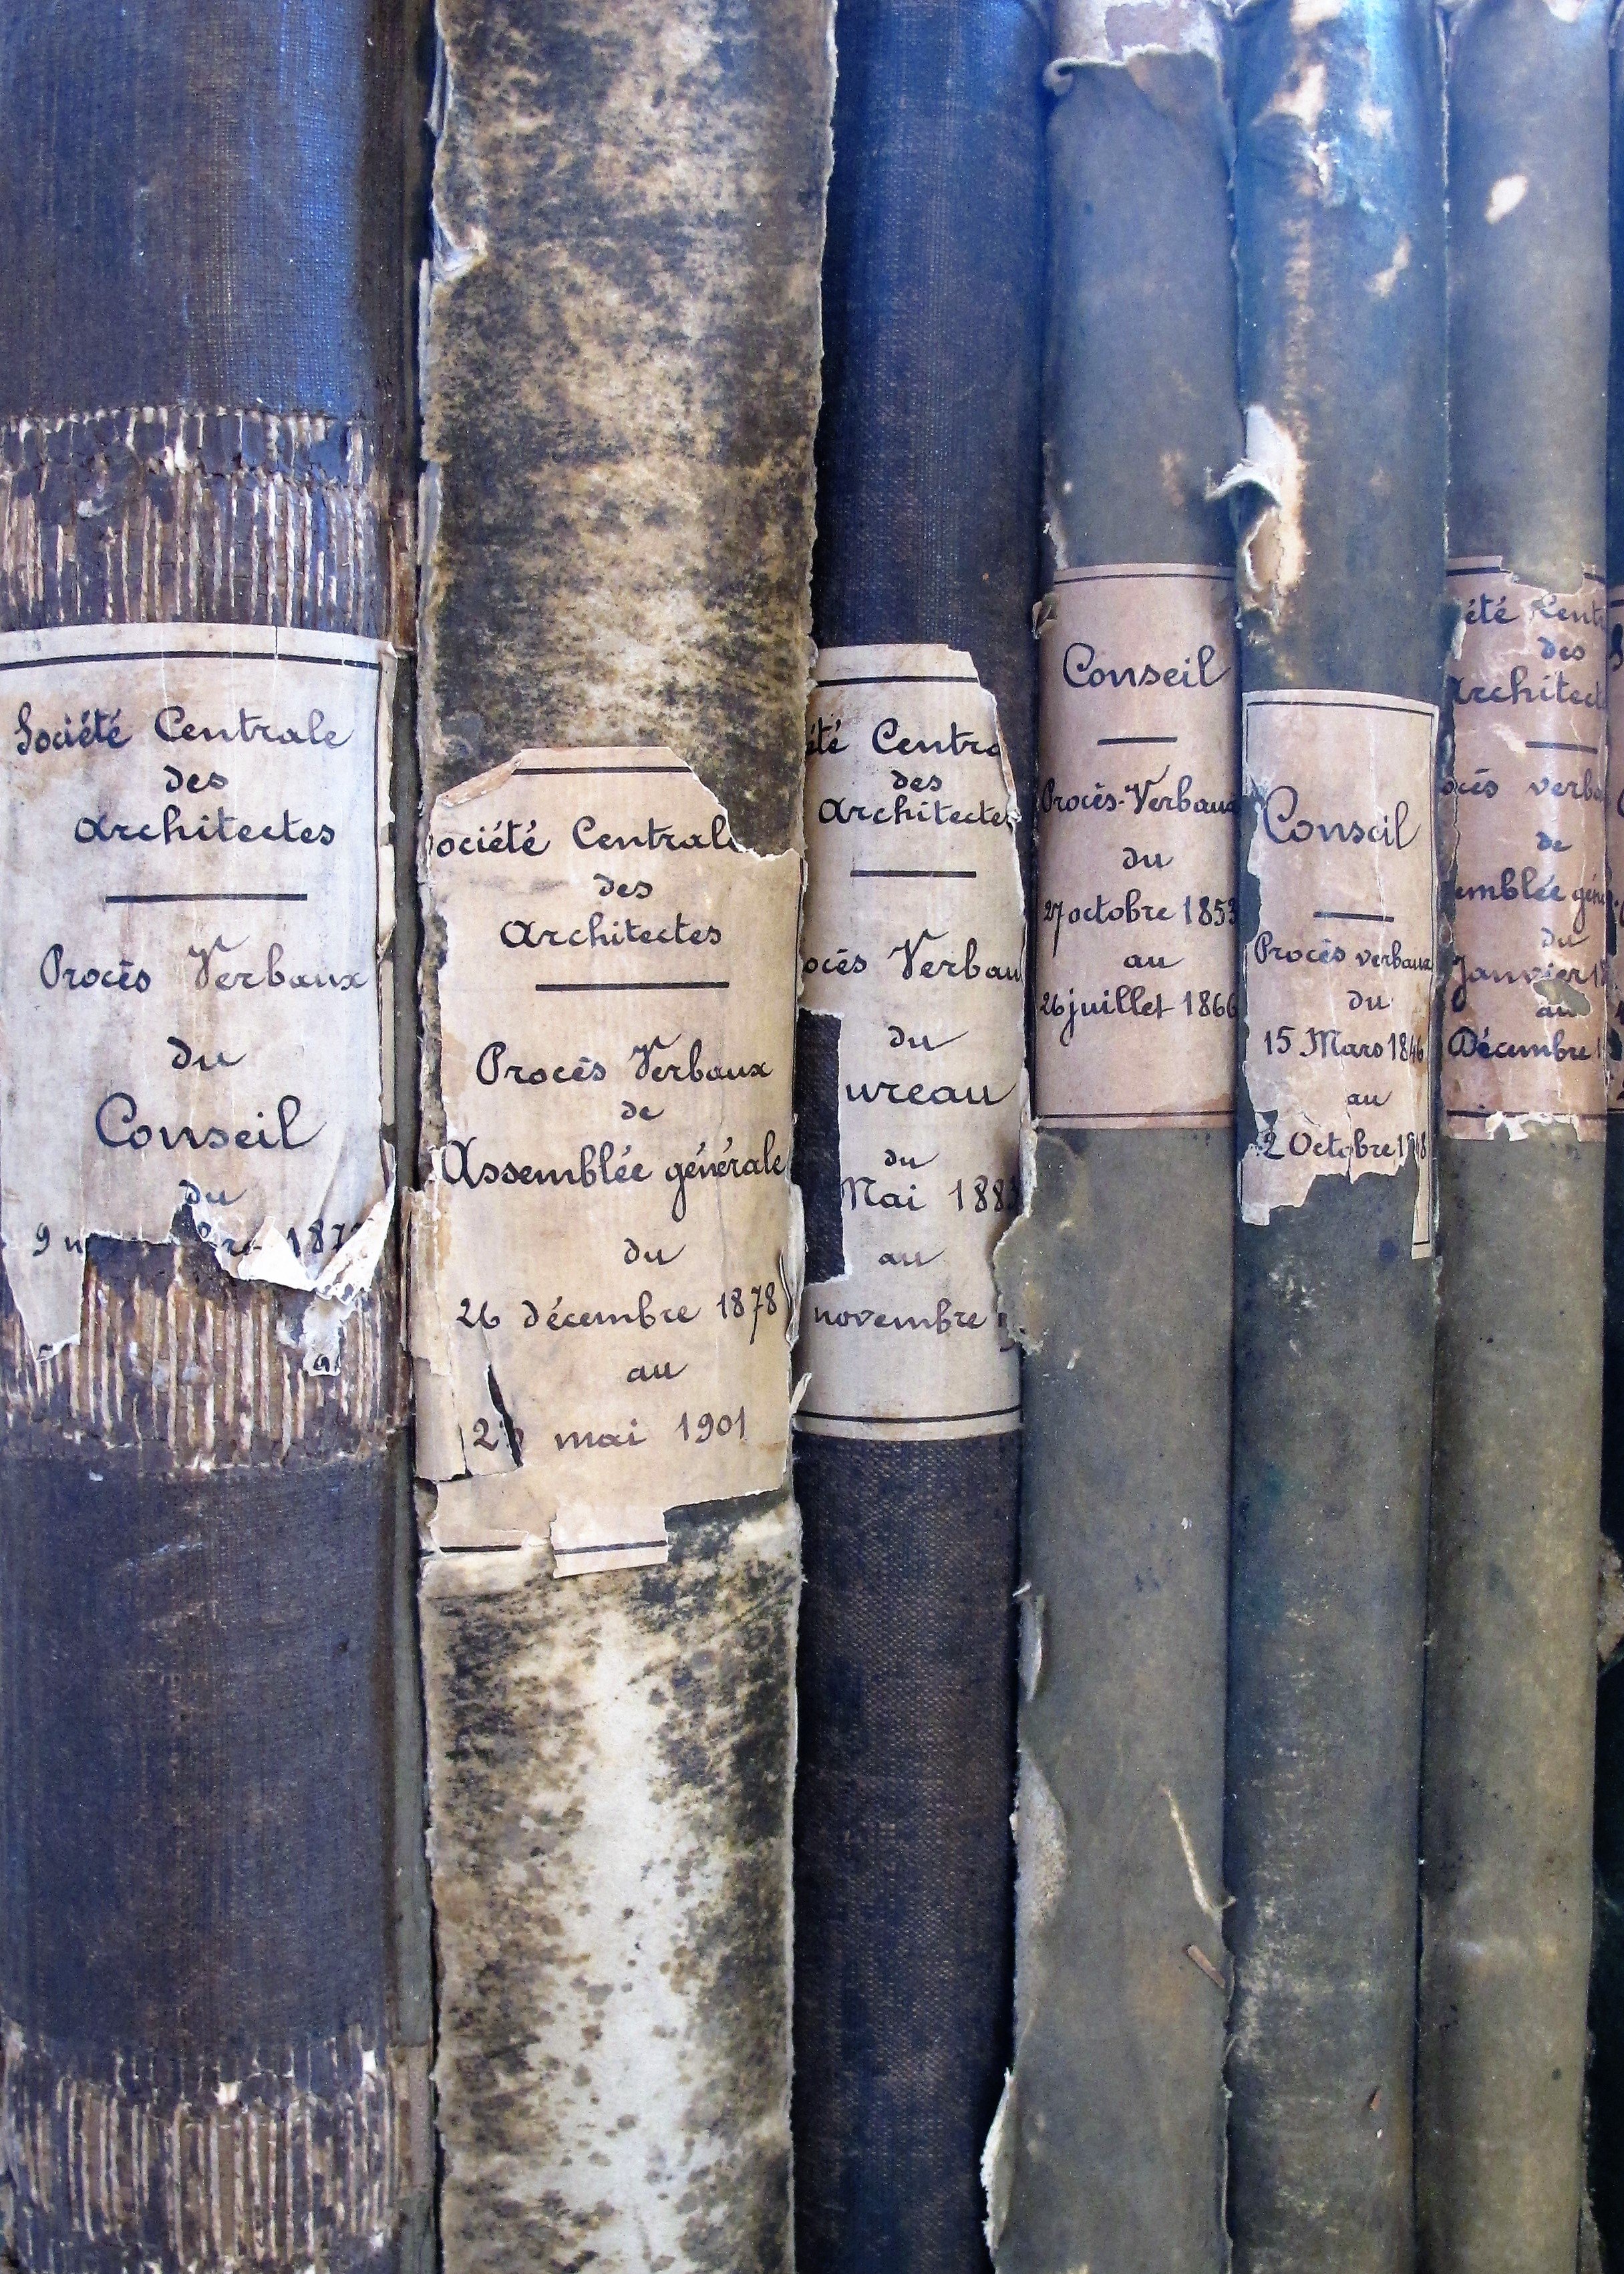 Société Centrale
des
Architectes
Procès Verbaux
du
Conseil
du
9
ociété Centrale
des
Architectes
Procès Verbaux
de
Assemblée générale
du
26 décembre 1878
au
mai 1901
été Centra
des
Architectes
ocès Verbau
du
ureau
du
Mai 188
au
novembre
Conseil
Procès-Verbaux
du
27 octobre 1853
au
26 juillet 1866
Conseil
Procès verbaux
du
15 Mars 1846
au
2 Octobre
été Cent
des
Architect
ocès verba
de
emblée gén
du
Janvier
au
Décembre